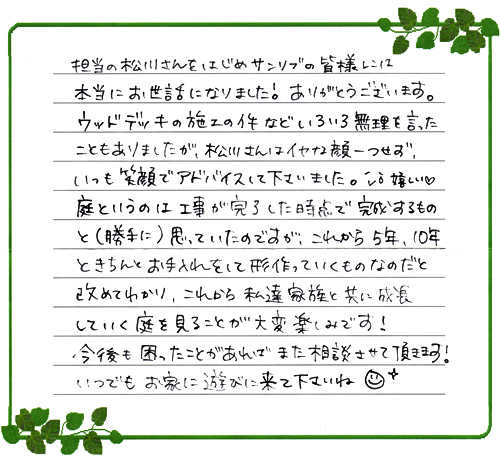 担当の松川さんをはじめサンリブの皆様には
本当にお世話になりました！ありがとうございます。
ウッドデッキの施工の件などいろいろ無理を言った
こともありましたが、松川さんはイヤな顔一つせず、
いつも笑顔でアドバイスして下さいました。嬉しい♡
庭というのは工事が完了した時点で完成するもの
と（勝手に）思っていたのですが、これから5年、10年
ときちんとお手入れをして形作っていくものなのだと
改めてわかり、これから私達家族と共に成長
していく庭を見ることが大変楽しみです！
今後も困ったことがあればまた相談させて頂きます！
いつでもお家に遊びに来て下さいね